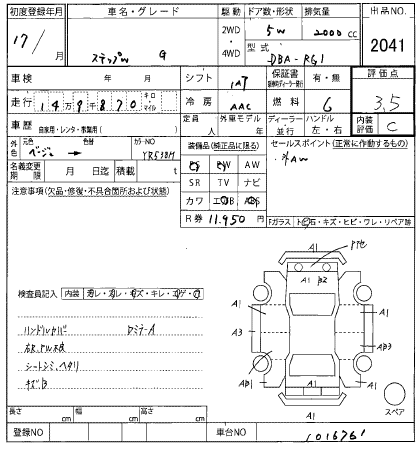 初度登録年月 車名・グレード 駆動 ドア数・形状 排気量 出品NO.
17/ ステップW G 2WD・4WD 5W 2000cc 2041
型式 DBA-RG1
車検 年 月 シフト IAT 保証書 有・無 評価点
走行 149870 キロ・マイル 冷房 AAC 燃料 G 3.5
車歴 自家用・レンタ・営業用( ) 定員 人 外車モデル 年 ディーラー・並行 ハンドル 左・右 内装評価 C
外色 元色 ベージュ → 色替 カラーNO YR538M 装備品(純正品に限る) セールスポイント(正常に作動するもの)
名義変更期限 月 日迄 積載 t PS PW AW
SR TV ナビ
注意事項(欠品・修復・不具合箇所および状態) カワ エアB ABS
R券 11,950円 Fガラス トビ石・キズ・ヒビ・ワレ・リペア跡
A1
A1 B2
検査員記入 内装
A1 A1
ハンドルカバー
A3 A3
AB3
シートシミ、ヘタリ
AB1 A1
A1
スペア
長さ cm 幅 cm 高さ cm
登録NO 車台NO 1016761